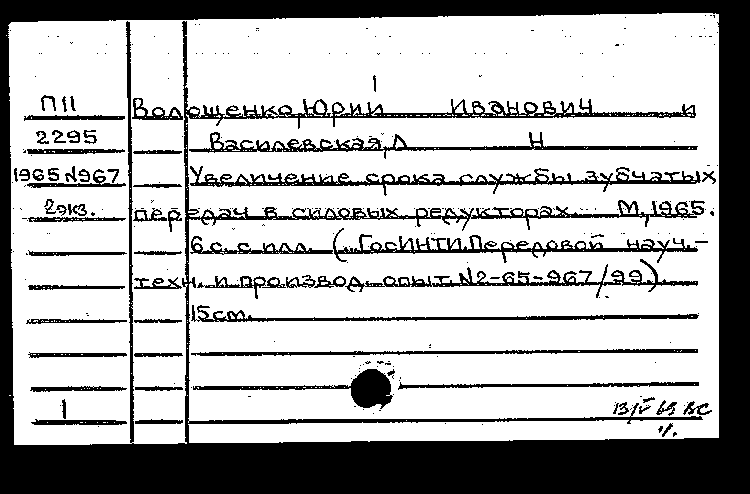 1
П11 Волощенко, Юрий Иванович и
2295 Василевская, Л Н
1965 №967 Увеличение срока службы зубчатых
2экз. передач в силовых редукторах. М, 1965.
6 с. с илл. (...ГосИНТИ. Передовой науч.-
техн. и производ. опыт. №2-65-967/99).
15 см.
1